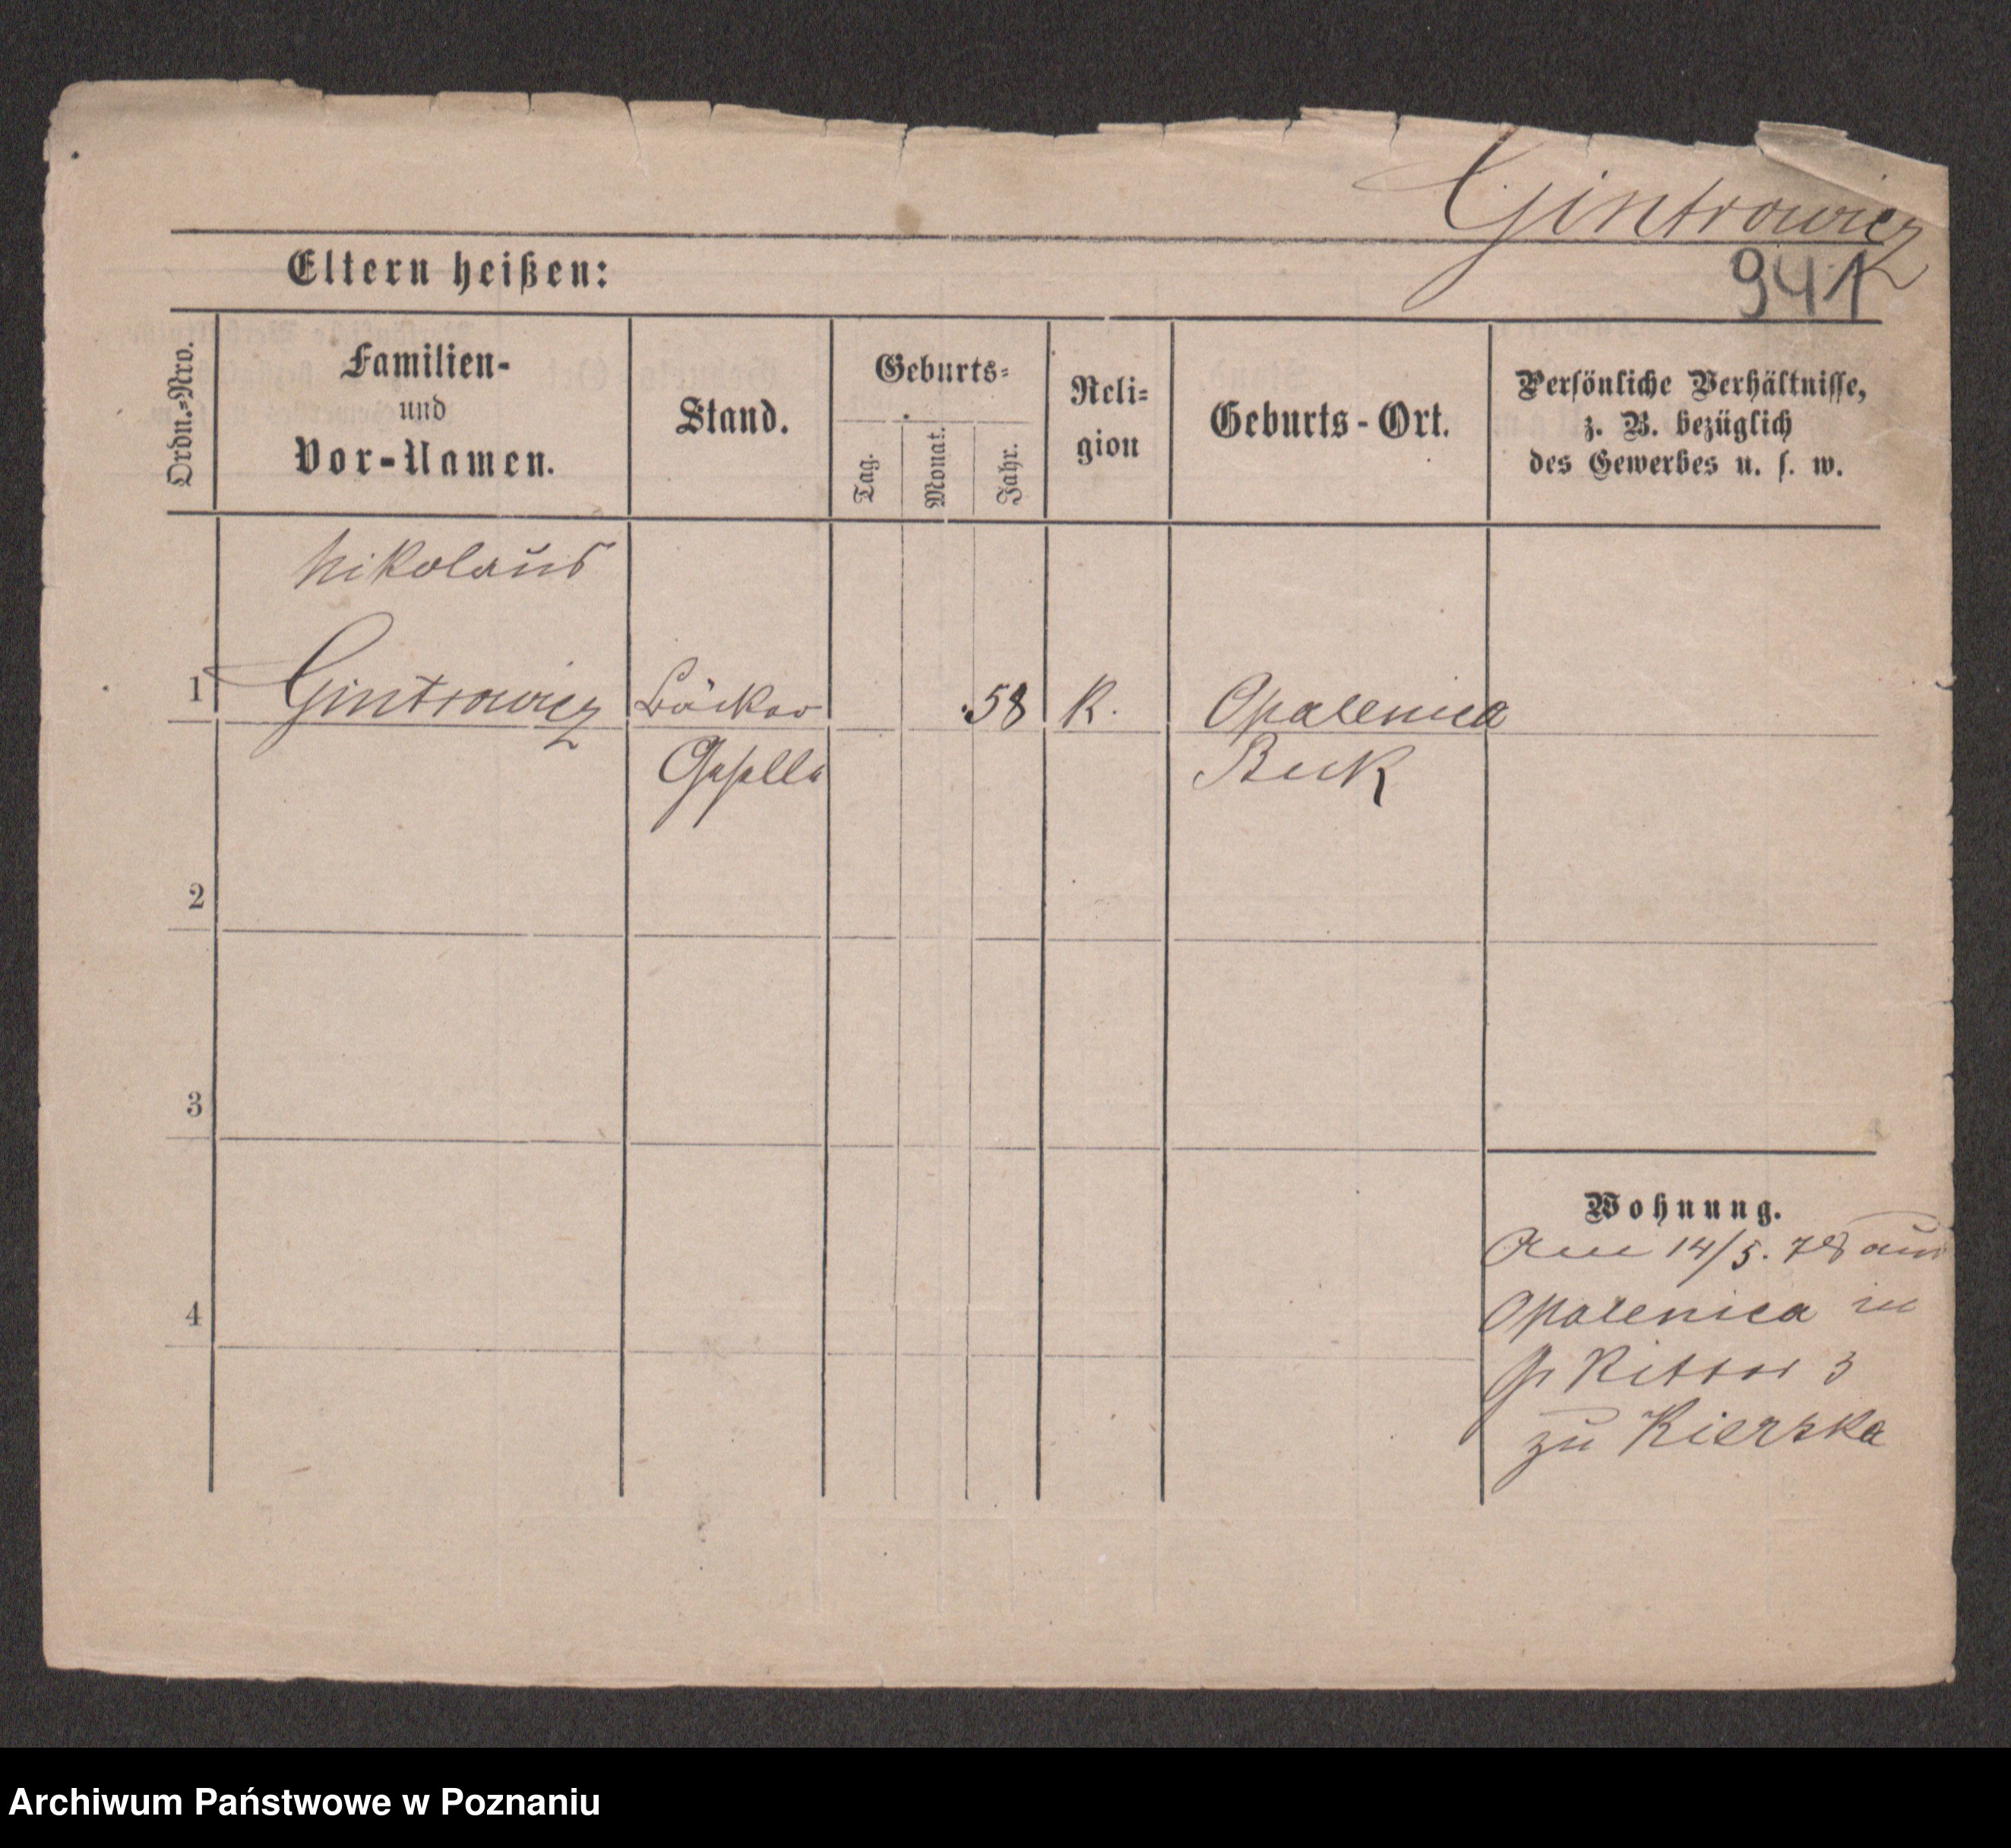 Gintrowicz
941
Eltern heißen:
Ordn.-Nro.
Familien-
und
Vor-Namen.
Stand.
Geburts-
Tag.
Monat.
Jahr.
Reli-
gion
Geburts-Ort.
Persönliche Verhältnisse,
z. B. bezüglich
des Gewerbes u. s. w.
Nikolaus
1 Gintrowicz Bäcker 58 K. Opalenica
Geselle Buk
2
3
4
Wohnung.
Am 14/5. 78 aus
Opalenica in
Gr Ritter 3
zu Kierska
Archiwum Państwowe w Poznaniu